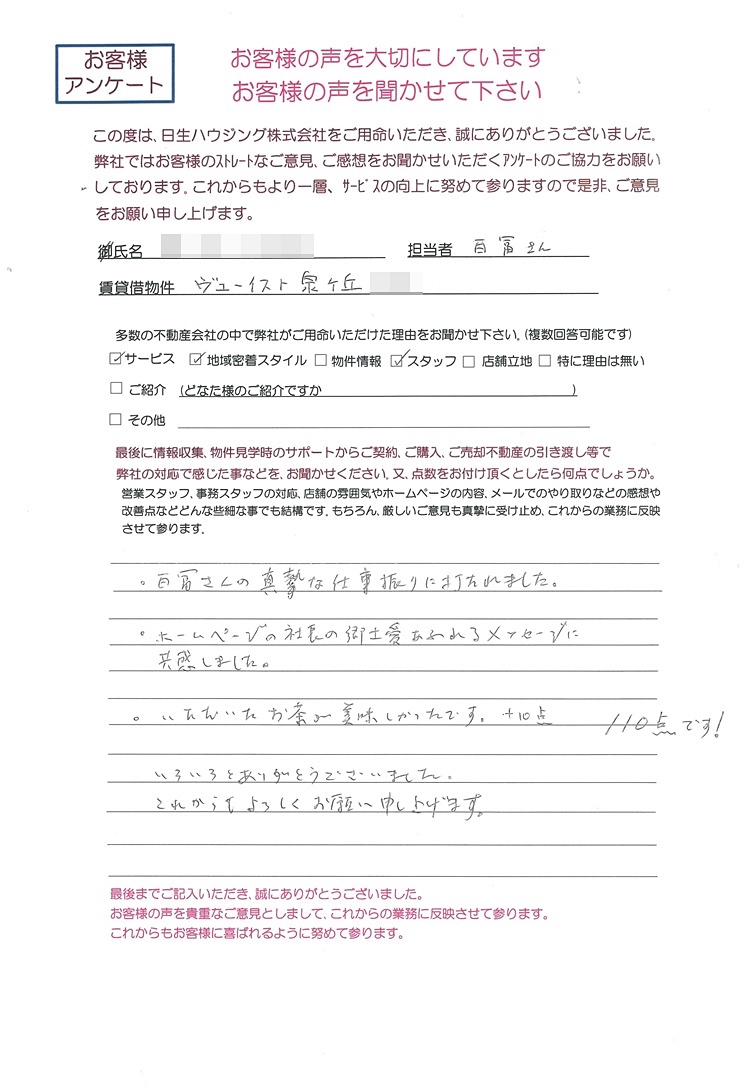 お客様
アンケート
お客様の声を大切にしています
お客様の声を聞かせて下さい
この度は、日生ハウジング株式会社をご用命いただき、誠にありがとうございました。
弊社ではお客様のｽﾄﾚｰﾄなご意見、ご感想をお聞かせいただくｱﾝｹｰﾄのご協力をお願い
しております。これからもより一層、ｻｰﾋﾞｽの向上に努めて参りますので是非、ご意見
をお願い申し上げます。
御氏名 担当者 百冨さん
賃貸借物件 ヴューイスト泉ヶ丘
多数の不動産会社の中で弊社がご用命いただけた理由をお聞かせ下さい。(複数回答可能です)
☑サービス ☑地域密着スタイル □物件情報 ☑スタッフ □店舗立地 □特に理由は無い
□ご紹介 (どなた様のご紹介ですか )
□その他
最後に情報収集、物件見学時のサポートからご契約、ご購入、ご売却不動産の引き渡し等で
弊社の対応で感じた事などを、お聞かせください。又、点数をお付け頂くとしたら何点でしょうか。
営業スタッフ、事務スタッフの対応、店舗の雰囲気やホームページの内容、メールでのやり取りなどの感想や
改善点などどんな些細な事でも結構です。もちろん、厳しいご意見も真摯に受け止め、これからの業務に反映
させて参ります。
。百冨さんの真摯な仕事振りに打たれました。
。ホームページの社長の郷土愛あふれるメッセージに
共感しました。
。いただいたお茶が美味しかったです。+10点 110点です!
いろいろとありがとうございました。
これからもよろしくお願い申し上げます。
最後までご記入いただき、誠にありがとうございました。
お客様の声を貴重なご意見としまして、これからの業務に反映させて参ります。
これからもお客様に喜ばれるように努めて参ります。